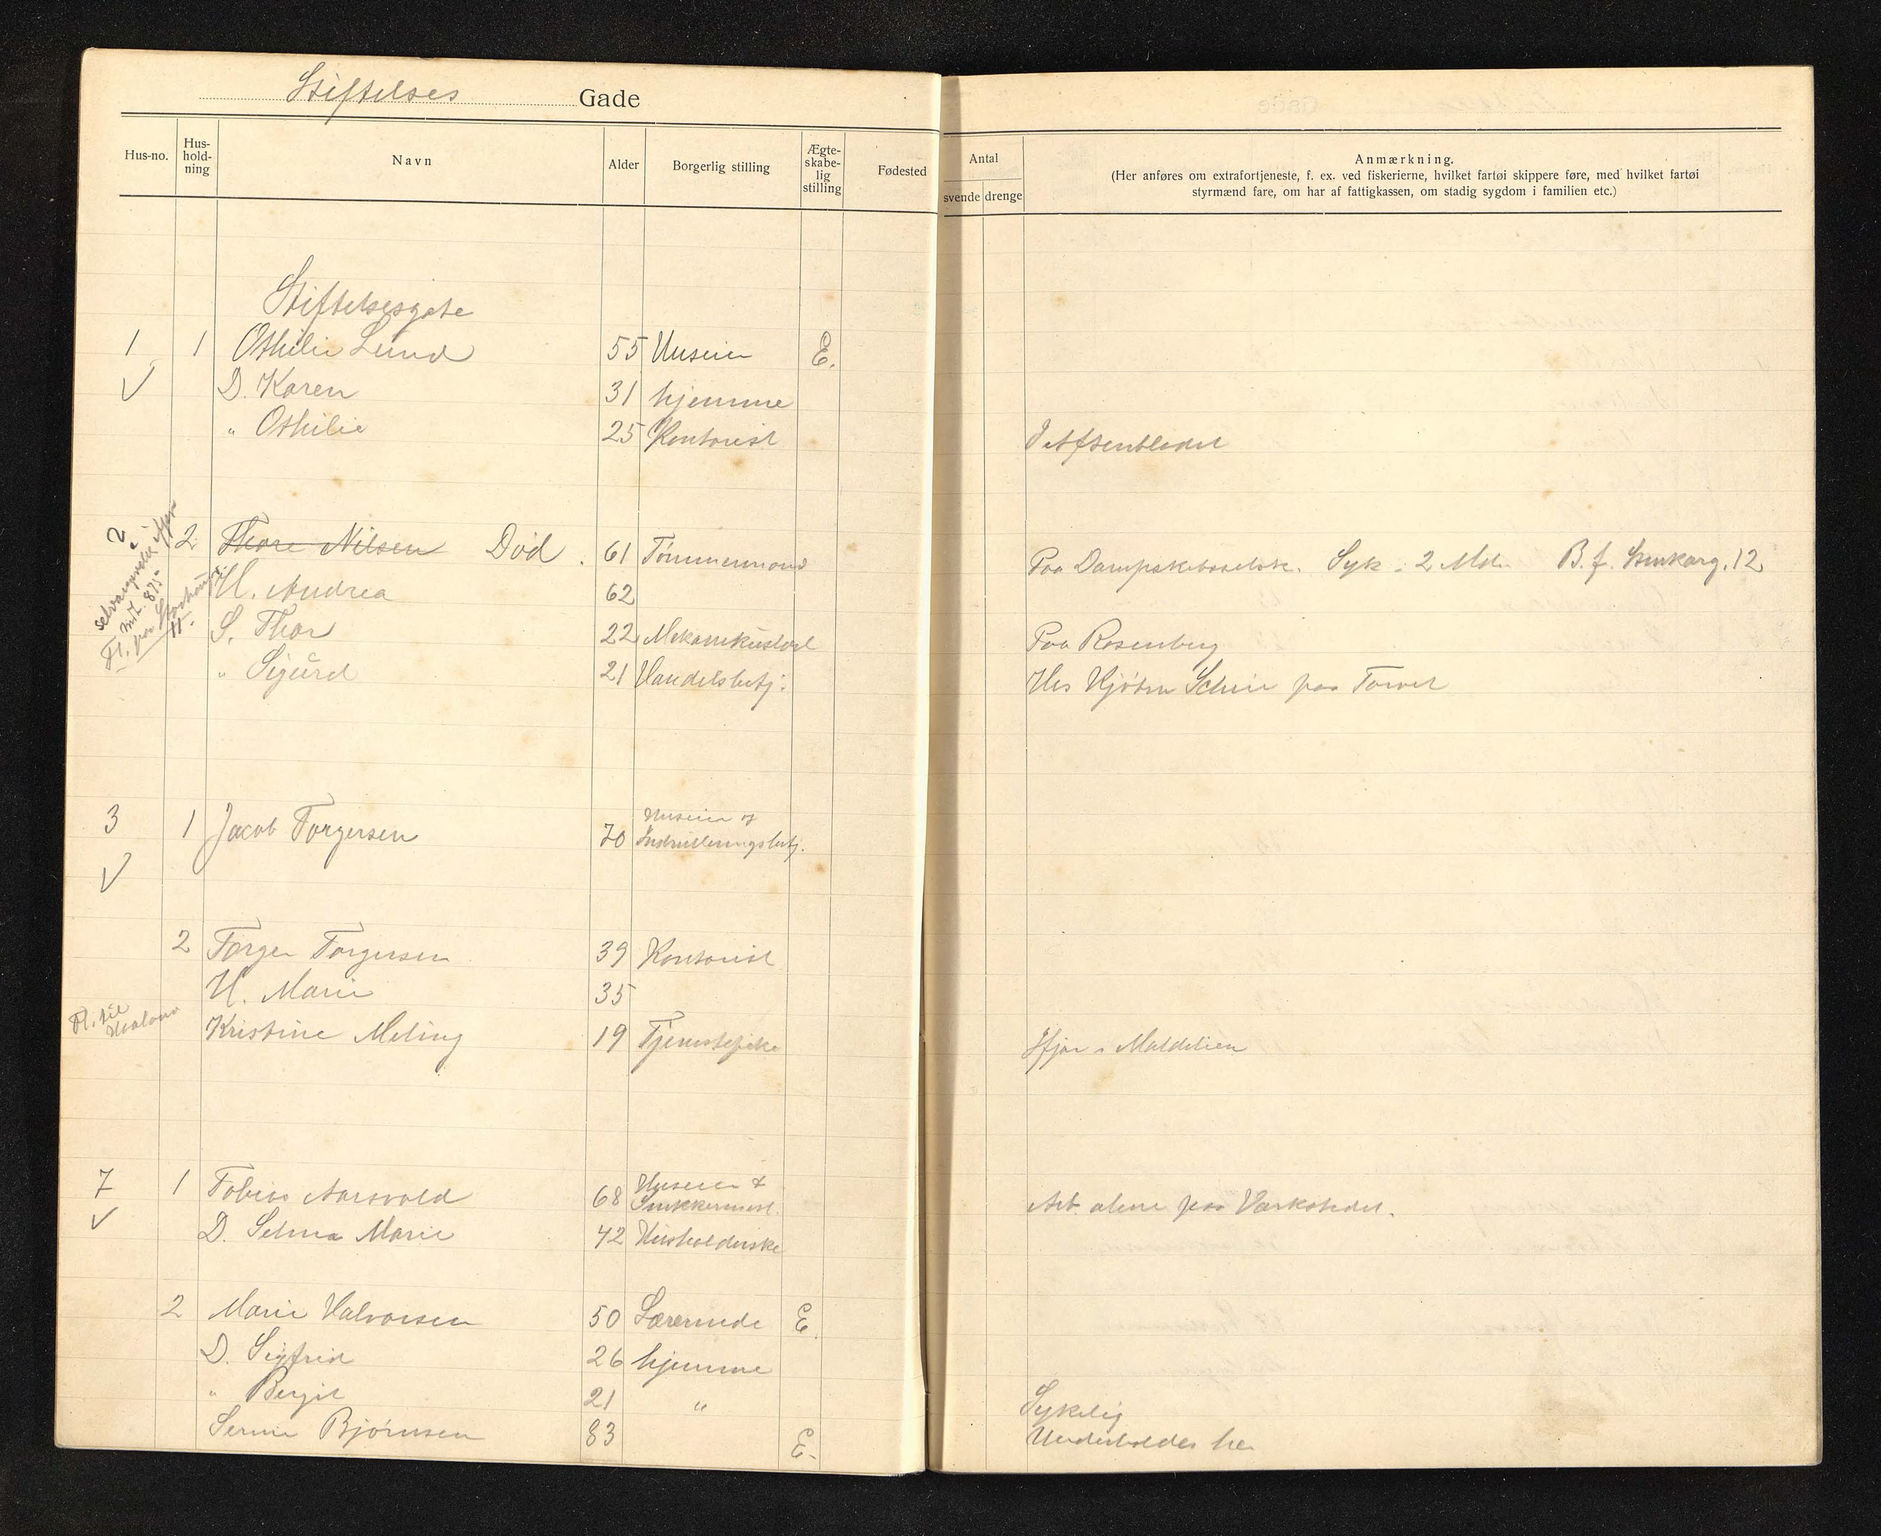 Stiftelses Gade
Hus-no. Hus-hold-ning Navn Alder Borgerlig stilling Ægte-skabe-lig stilling Fødested
Antal
svende drenge
Anmærkning.
(Her anføres om extrafortjeneste, f. ex. ved fiskerierne, hvilket fartøi skippere føre, med hvilket fartøi
styrmænd fare, om har af fattigkassen, om stadig sygdom i familien etc.)
Stiftelsesgate
1 1 Othilie Lund 55 Huseier E.
√ D. Karen 31 hjemme
" Othilie 25 Kontorist I Aftenbladet
2 2 Thore Nilsen Död. 61 Tømmermand Paa Dampskibsselsk. Syk i 2 Mdr. B. f. 12
H. Andrea 62
S. Thor 22 Paa Rosenberg
" Sigurd 21 Handelsbetj. Hos Schie paa Torvet
Fl. fra
11.
3 1 Jacob Torgersen 70 Huseier og
√
2 Torger Torgersen 39 Kontorist
H. Marie 35
Fl. til
Kristine Meling 19 Tjenestepike Ifjor i Maldelien
7 1 Tobias Aarsvold 68 Huseier & Snekkermest. Arb. alene paa Værkstedet.
√ D. Selma Marie 42 Husholderske
2 Marie Halvorsen 50 Lærerinde E
D. Sigfrid 26 hjemme
" Bergit 21 " Sykelig
Serine Bjørnsen 83 E. Underholdes her